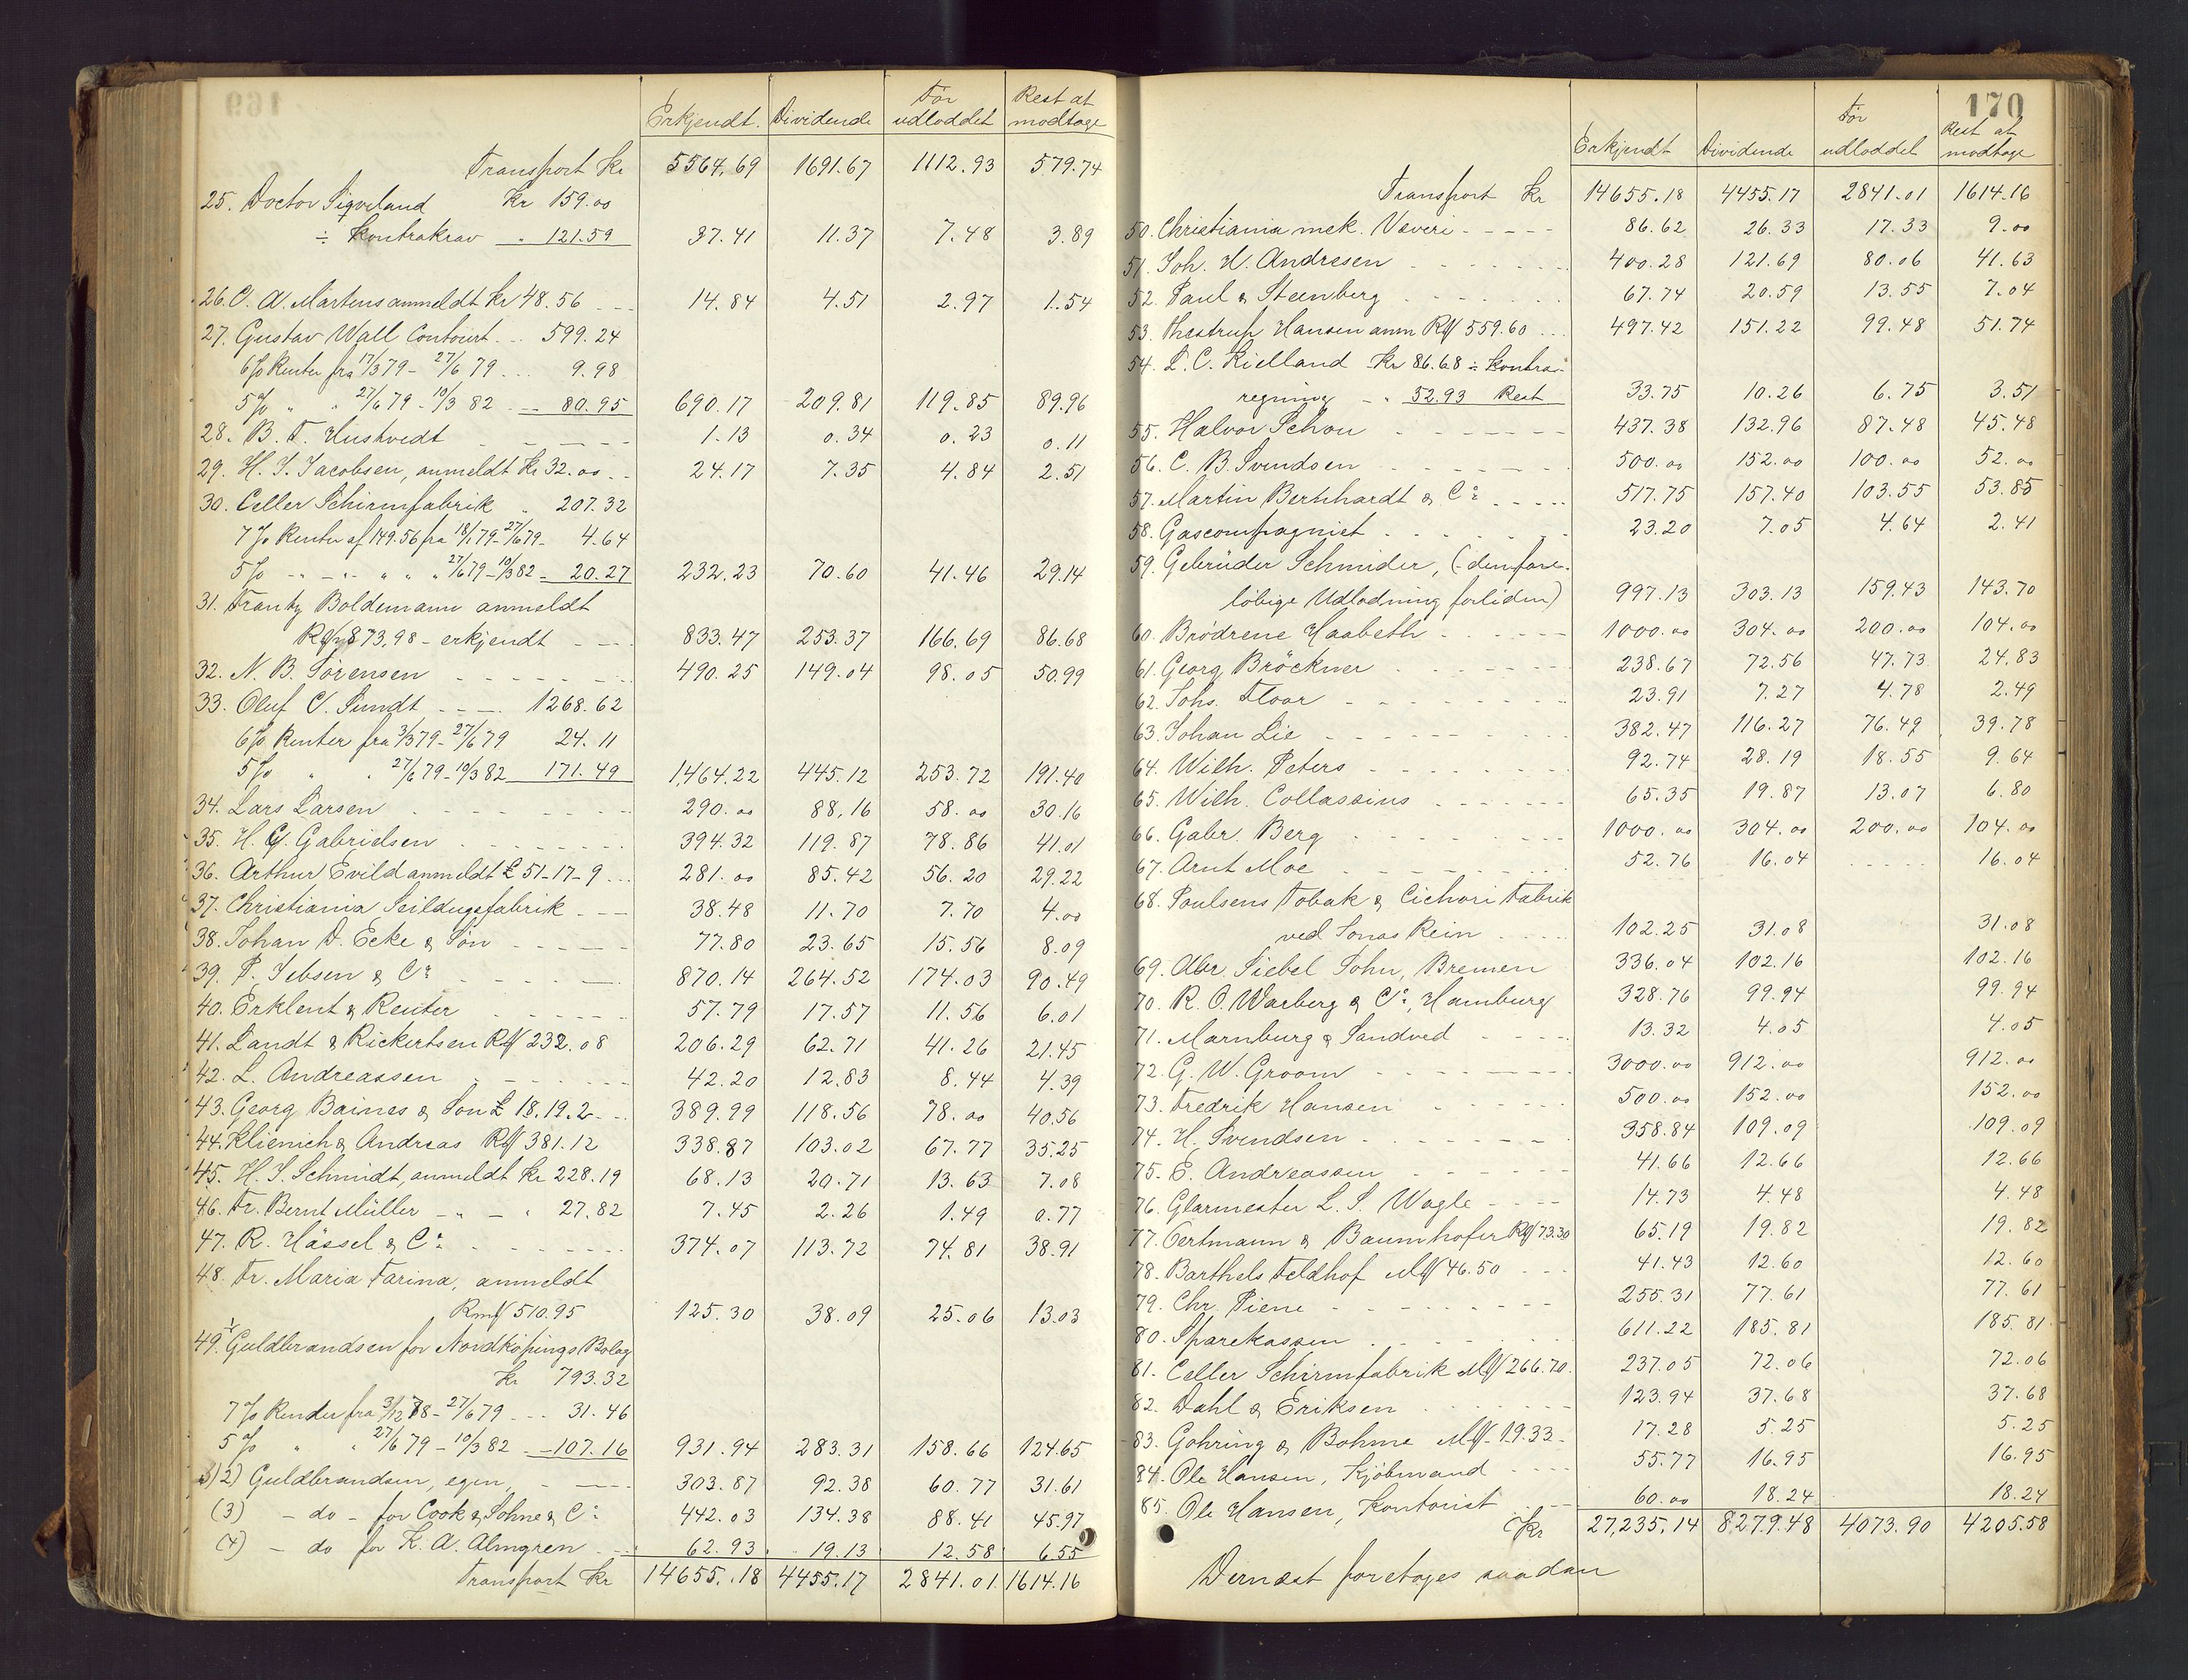 169
Erkjendt. Dividende Før udloddet Rest at modtage
Transport Kr 5564.69 1691.67 1112.93 579.74
25. Doctor Sigveland Kr 159.00
÷ Kontrakrav " 121.59 37.41 11.37 7.48 3.89
26. C. A. Martens anmeldt Kr 48.56 14.84 4.51 2.97 1.54
27. Gustav Wall Contoirt. 599.24
6% Renter fra 17/3 79 - 27/6 79 9.98
5% " " 27/6 79 - 10/3 82 80.95 690.17 209.81 119.85 89.96
28. B. T. Hustvedt 1.13 0.34 0.23 0.11
29. H. J. Jacobsen, anmeldt Kr 32.00 24.17 7.35 4.84 2.51
30. Celler Schirmfabrik " 207.32
7% Renter af 149.56 fra 18/1 79 - 27/6 79 - 4.64
5% " - " " " 27/6 79 - 10/3 82 - 20.27 232.23 70.60 41.46 29.14
31. Frantz Boldemann anmeldt
873,98 - erkjendt 833.47 253.37 166.69 86.68
32. N. B. Sørensen 490.25 149.04 98.05 50.99
33. Oluf C. Sundt 1268.62
6% Renter fra 3/3 79 - 27/6 79 24.11
5% " " 27/6 79 - 10/3 82 171.49 1,464.22 445.12 253.72 191.40
34. Lars Larsen 290.00 88,16 58.00 30.16
35. H. G. Gabrielsen 394.32 119.87 78.86 41.01
36. Arthur Evild anmeldt £ 51-17-9 281.00 85.42 56.20 29.22
37. Christiania Seildugsfabrik 38.48 11.70 7.70 4.00
38. Johan D. Ecke & Søn 77.80 23.65 15.56 8.09
39. P. Jebsen & Co 870.14 264.52 174.03 90.49
40. Erklent & Reuter 57.79 17.57 11.56 6.01
41. Landt & Rickertsen Rm 232.08 206.29 62.71 41.26 21.45
42. L. Andreassen 42.20 12.83 8.44 4.39
43. Georg Baines & Son £ 18.19.2 389.99 118.56 78.00 40.56
44. Klienich & Andreas Rm 381.12 338.87 103.02 67.77 35.25
45. H. J. Schmidt, anmeldt Kr 228.19 68.13 20.71 13.63 7.08
46. Fr. Bernt Müller - " - " 27.82 7.45 2.26 1.49 0.77
47. R. Hässel & Co 374.07 113.72 74.81 38.91
48. Fr. Maria Farina, anmeldt
Rm 510.95 125.30 38.09 25.06 13.03
49. 1) Guldbrandsen for Nordköpings Bolag
Kr 793.32
7% Renter fra 3/12 78 - 27/6 79 31.46
5% " " 27/6 79 - 10/3 82 - 107.16 931.94 283.31 158.66 124.65
2) Guldbrandsen, egen, 303.87 92.38 60.77 31.61
(3) - do - for Cook & Sohne & Co 442.03 134.38 88.41 45.97
(4) - do for K. A. Almgren 62.93 19.13 12.58 6.55
Transport Kr 14655.18 4455.17 2841.01 1614.16
170
Erkjendt Dividende Før udloddet Rest at modtage
Transport Kr 14655.18 4455.17 2841.01 1614.16
50. Christiania mek. Væveri 86.62 26.33 17.33 9.00
51. Joh. H. Andresen 400.28 121.69 80.06 41.63
52. Paul & Steenberg 67.74 20.59 13.55 7.04
53. Thestrup Hansen anm Rm 559.60 497.42 151.22 99.48 51.74
54. L. C. Kielland Kr 86.68 ÷ Kontra-
regning - " 52.93 Rest 33.75 10.26 6.75 3.51
55. Halvor Schou 437.38 132.96 87.48 45.48
56. C. B. Svendsen 500.00 152.00 100.00 52.00
57. Martin Bernhardt & Co 517.75 157.40 103.55 53.85
58. Gascompagniet 23.20 7.05 4.64 2.41
59. Gebrüder Schmider, (- den fore-
löbige Udlodning forliden) 997.13 303.13 159.43 143.70
60. Brödrene Haabeth 1000.00 304.00 200.00 104.00
61. Georg Bröckner 238.67 72.56 47.73 24.83
62. Johs. Floor 23.91 7.27 4.78 2.49
63. Johan Lie 382.47 116.27 76.49 39.78
64. Wilh. Peters 92.74 28.19 18.55 9.64
65. Wilh. Collassius 65.35 19.87 13.07 6.80
66. Gabr. Berg 1000.00 304.00 200.00 104.00
67. Arnt Moe 52.76 16.04 - - - - - 16.04
68. Poulsens Tobak & Cichori Fabrik
ved Jonas Rein 102.25 31.08 31.08
69. Abr. Siebel Sohn, Bremen 336.04 102.16 102.16
70. R. O. Warberg & Co, Hamburg 328.76 99.94 99.94
71. Marnburg & Sandved 13.32 4.05 4.05
72. G. W. Groom 3000.00 912.00 912.00
73. Fredrik Hansen 500.00 152.00 152.00
74. H. Svendsen 358.84 109.09 109.09
75. E. Andreassen 41.66 12.66 12.66
76. Glarmester L. S. Wagle 14.73 4.48 4.48
77. Oertmann & Baumhofer Rm 73.30 65.19 19.82 19.82
78. Barthels Feldhof M 46.50 41.43 12.60 12.60
79. Chr. Piene 255.31 77.61 77.61
80. Sparekassen 611.22 185.81 185.81
81. Celler Schirmfabrik M 266.70 237.05 72.06 72.06
82. Dahl & Eriksen 123.94 37.68 37.68
83. Gohring & Bohme M - 19.33 17.28 5.25 5.25
84. Ole Hansen, Kjöbmand 55.77 16.95 16.95
85. Ole Hansen, Kontorist 60.00 18.24 18.24
Kr 27,235.14 8279.48 4073.90 4205.58
Dernæst foretoges saadan